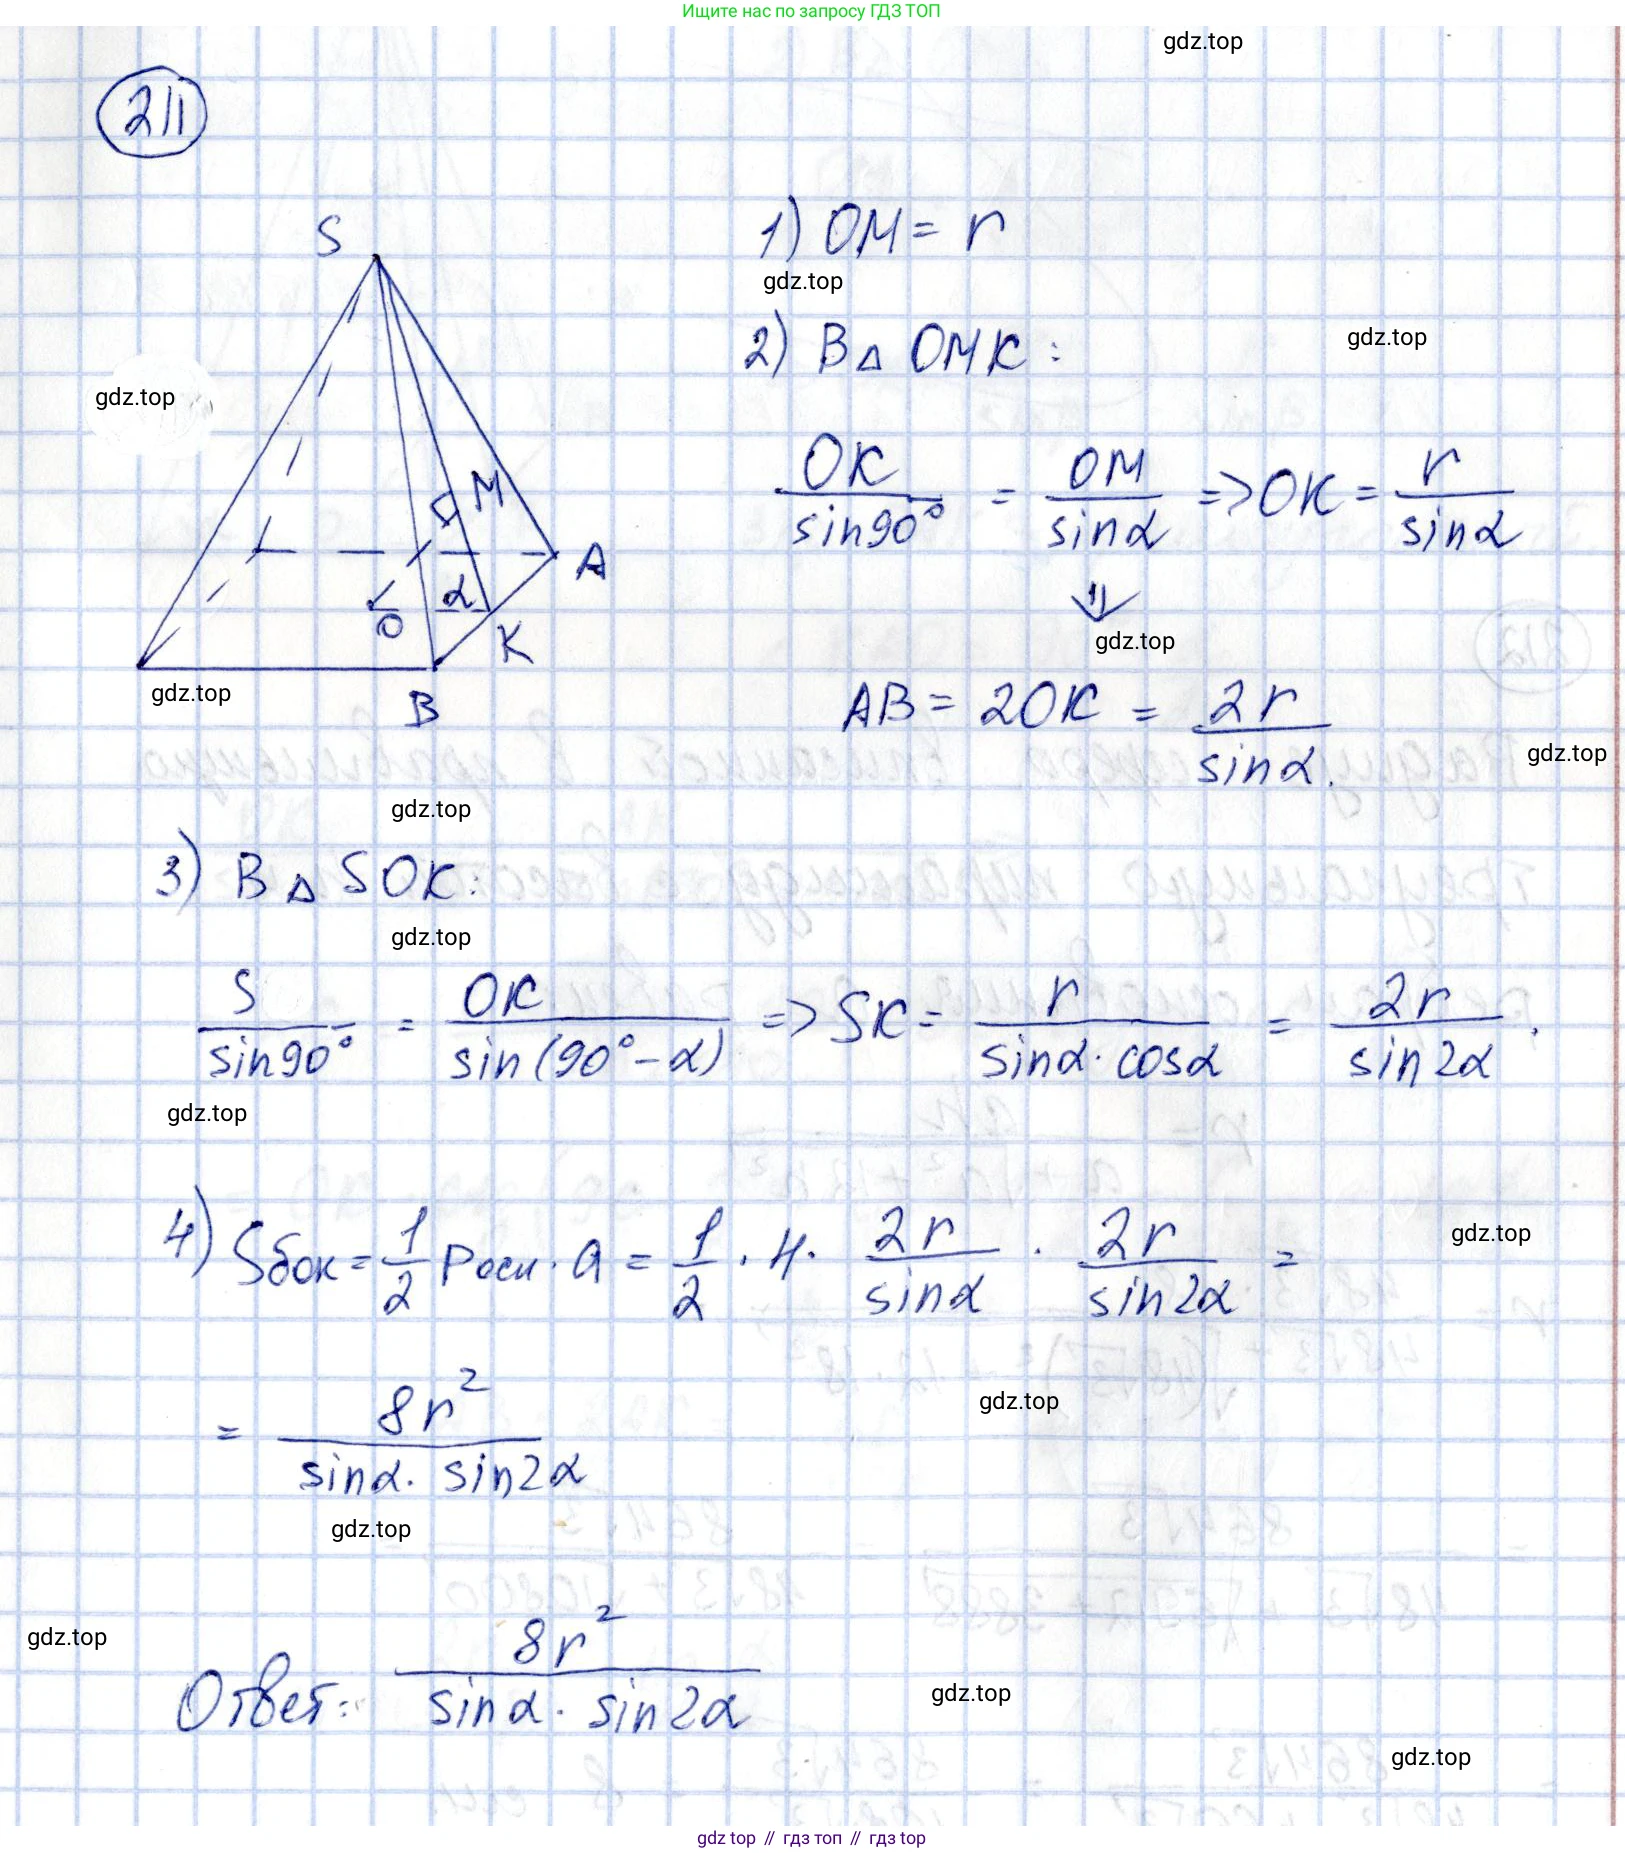 Ищите нас по запросу ГДЗ ТОП
gdz.top
211
S
1) OM = r
gdz.top
2) В △ OMK :
gdz.top
gdz.top
OK / sin90° = OM / sinα => OK = r / sinα
M
A
α
O
K
⇓
gdz.top
gdz.top
B
AB = 2OK = 2r / sinα.
gdz.top
gdz.top
3) В △ SOK:
gdz.top
S / sin90° = OK / sin(90°-α) => SK = r / sinα · cosα = 2r / sin2α.
gdz.top
4) Sбок = 1/2 Pосн · a = 1/2 · 4 · 2r / sinα · 2r / sin2α =
gdz.top
= 8r² / sinα · sin2α
gdz.top
gdz.top
gdz.top
Ответ: 8r² / sinα · sin2α
gdz.top
gdz.top
gdz top // гдз топ // гдз top